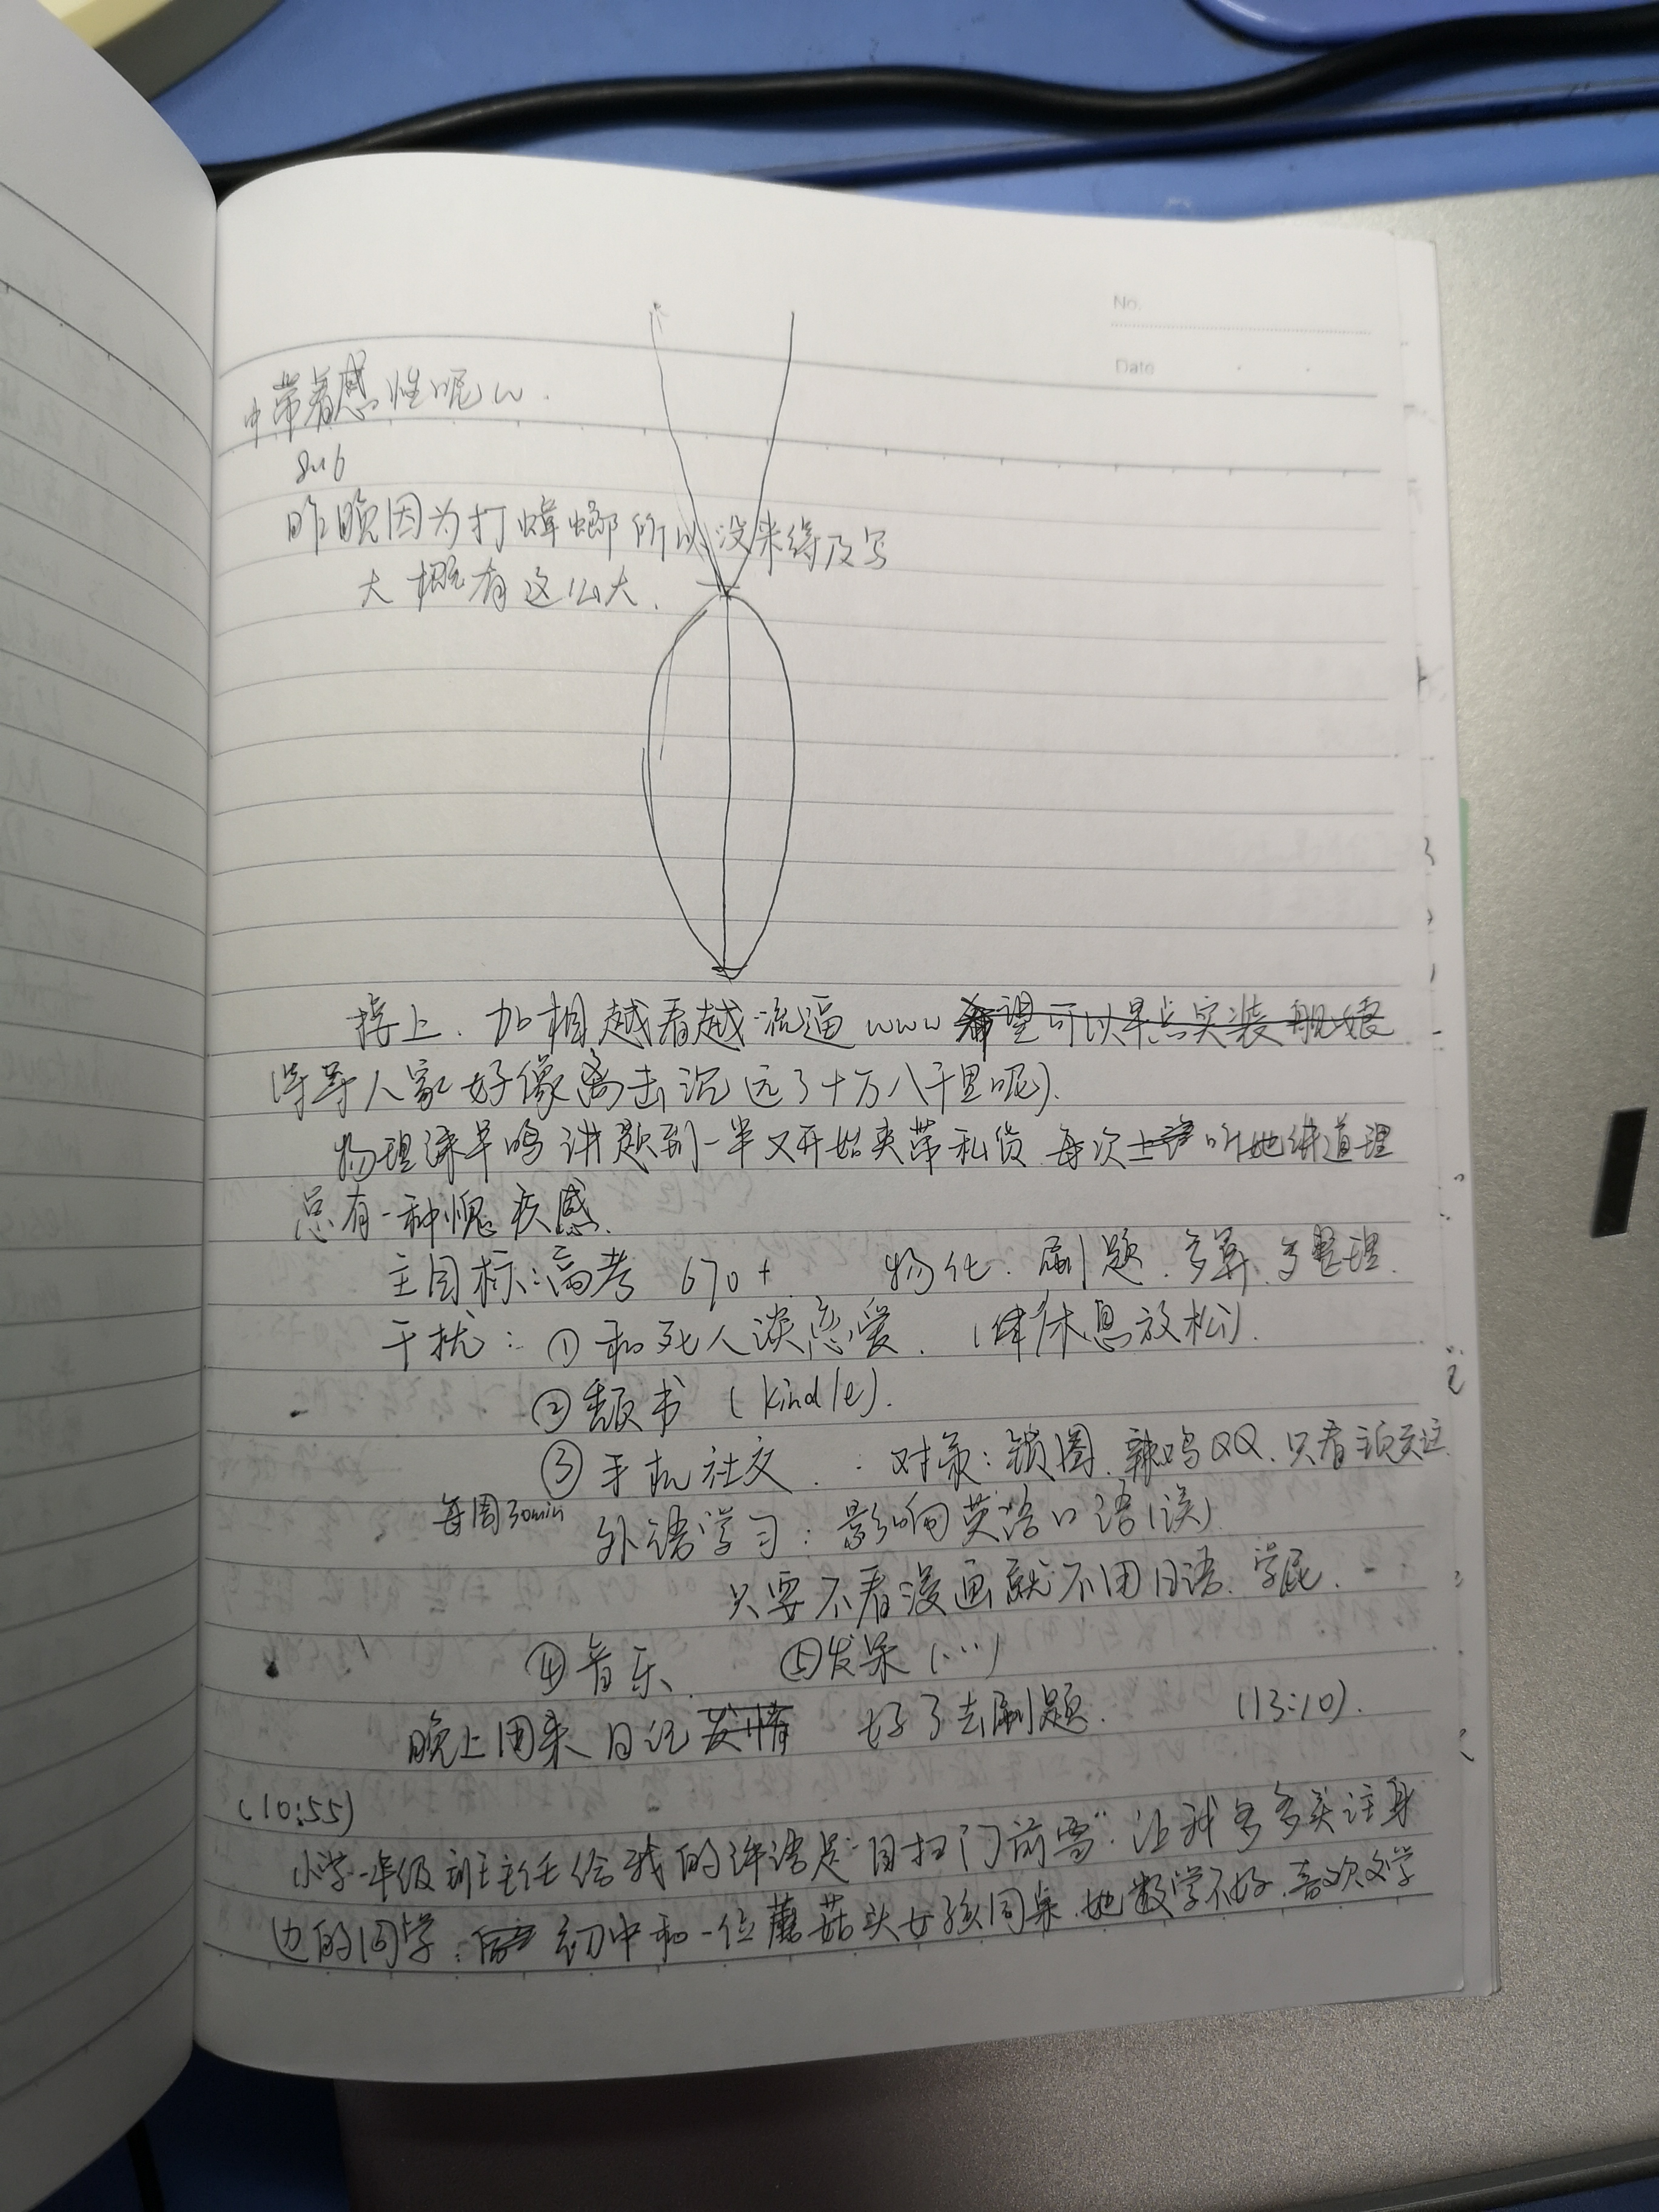 No.
Date
中带着感性呢w.
昨晚因为打蟑螂所以没来得及写
大概有这么大.
接上. 加相越看越流逼www希望可以早点实装舰娘
等等人家好像离击沉远了十万八千里呢).
物理课 讲题到一半又开始夹带私货 每次 听她讲道理
总有一种愧疚感.
主目标:高考 670+ 物化. 刷题. 多算. 多整理.
干扰: ①和死人谈恋爱. (休息放松).
②翻书 (kindle).
③手机社交. 对象: 锁圈. QQ. 只看
每周30min
外语学习: 影响英语口语(误)
只要不看漫画就不用日语. 学屁.
④音乐. ⑤发呆(...)
晚上回来日记发情 好了去刷题. (13:10).
(10:55)
小学一年级班主任给我的评语是"自扫门前雪". 让我多多关注身
边的同学. 初中和一位蘑菇头女孩同桌. 她数学不好. 喜欢文学